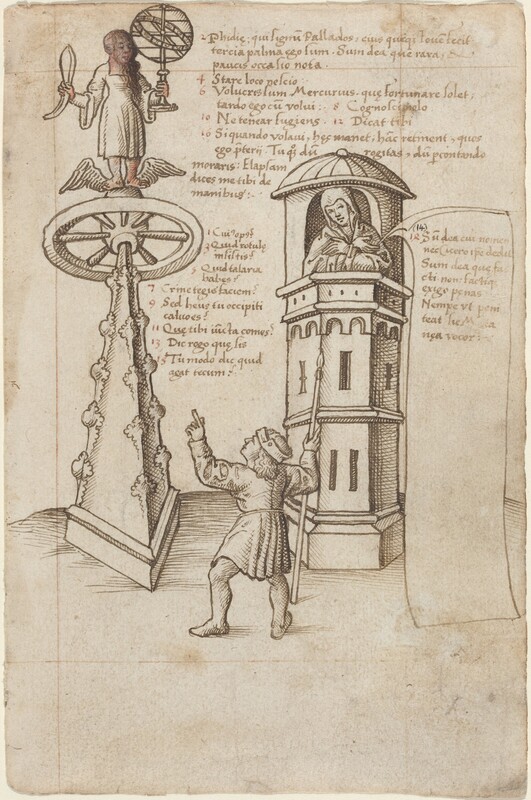 2 Phidie, qui signū Pallados, eius quiqi Iouē fecit
tercia palma ego sum. Sum dea que rara,
paucis occasio nota.
4 Stare loco nescio
6 Volucres sum Mercurius, que fortunare solet,
tardo ego cū volui: 8 Cognosci nolo
10 Ne tenear fugiens. 12 Dicat tibi
16 Si quando volaui, hęc manet, hāc retinent, quos
ego pterij Tu qi dū rogitas, dū pcontando
moraris: Elapsam
dices me tibi de
manibus:
1 Cui opus?
3 Quid rotule
insistis?
5 Quid talaria
habes?
7 Crine tegis faciem?
9 Sed heus tu occipiti
calvo es?
11 Que tibi iūcta comes?
13 Dic rogo que sis
15 Tu modo dic quid
agat tecum?
(14)
Sū dea cui nomen
nec Cicero ipe dedit
Sum dea que fa
cti non factiq
exigo penas
Nempe vt peni
teat sic
nea vocor: